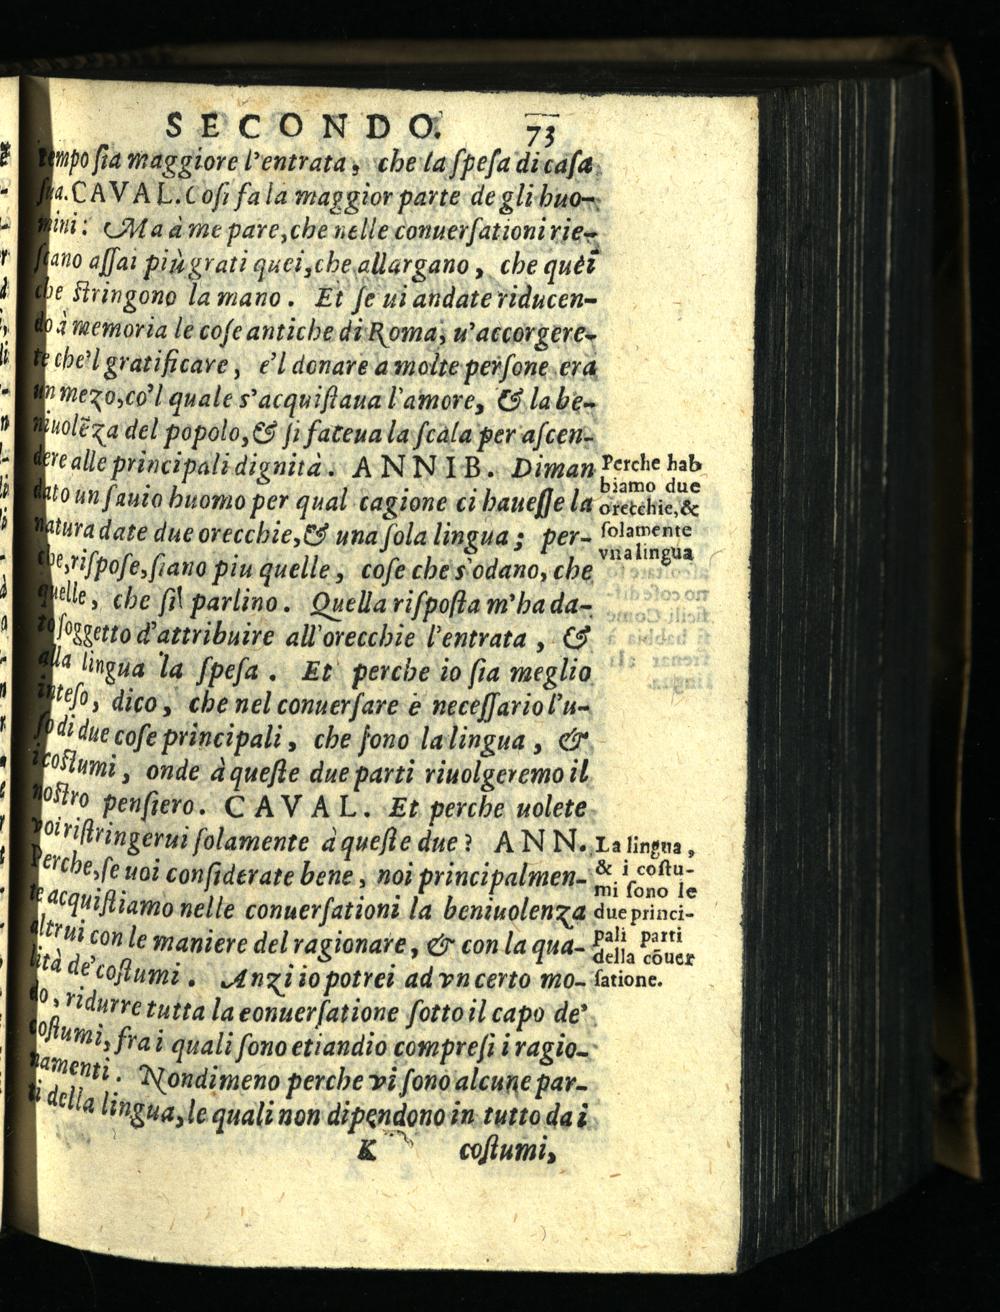 SECONDO. 73
tempo ſia maggiore l'entrata, che la ſpeſa di caſa
ſua. CAVAL. Coſi fa la maggior parte de gli huo-
mini: Ma à me pare, che nelle conuerſationi rie-
ſcano aſſai più grati quei, che allargano, che quei
che ſtringono la mano. Et ſe ui andate riducen-
do à memoria le coſe antiche di Roma, u'accorgere-
te che'l gratificare, e'l donare a molte perſone era
un mezo, co'l quale s'acquiſtaua l'amore, & la be-
niuolẽza del popolo, & ſi faceua la ſcala per aſcen-
dere alle principali dignità. ANNIB. Diman
dato un ſauio huomo per qual cagione ci haueſſe la
natura date due orecchie, & una ſola lingua; per-
che, riſpoſe, ſiano piu quelle, coſe che s'odano, che
quelle, che ſi parlino. Quella riſpoſta m'ha da-
to ſoggetto d'attribuire all'orecchie l'entrata, &
alla lingua la ſpeſa. Et perche io ſia meglio
inteſo, dico, che nel conuerſare è neceſſario l'u-
ſo di due coſe principali, che ſono la lingua, &
i coſtumi, onde à queſte due parti riuolgeremo il
noſtro penſiero. CAVAL. Et perche uolete
voi riſtringerui ſolamente à queſte due? ANN.
Perche, ſe uoi conſiderate bene, noi principalmen-
te acquiſtiamo nelle conuerſationi la beniuolenza
altrui con le maniere del ragionare, & con la qua-
lità de' coſtumi. Anzi io potrei ad vn certo mo-
do, ridurre tutta la conuerſatione ſotto il capo de'
coſtumi, fra i quali ſono etiandio compreſi i ragio-
namenti. Nondimeno perche vi ſono alcune par-
ti della lingua, le quali non dipendono in tutto da i
K coſtumi,
Perche hab
biamo due
orecchie, &
ſolamente
vna lingua
La lingua,
& i coſtu-
mi ſono le
due princi-
pali parti
della cõuer
ſatione.